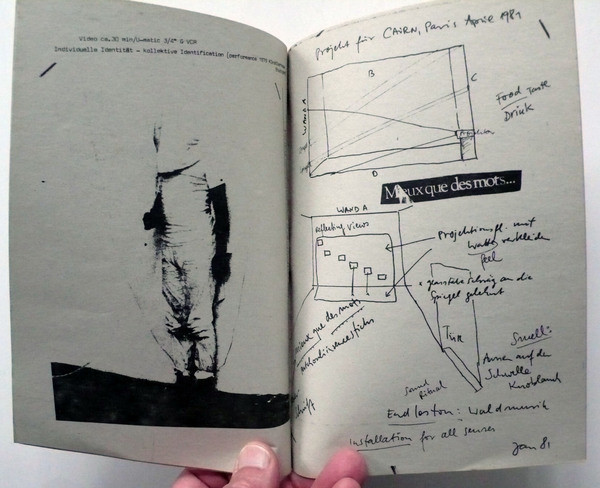 Video ca.30 min/U-matic 3/4" VCR
Individuelle Identität - kollektive Identification (performance
Projekt für CAIRN, Paris April 1981
B
C
WAND A
Food taste
Drink
D
Mieux que des mots...
WAND A
reflecting views
Projektionsfl. mit
Watte verkleiden
feel
an die
Spiegel gelehnt
mieux que des mots
Tür
Smell:
Aussen auf der
Schwelle
Knoblauch
Sound
Ritual
Endloston: Waldmusik
Installation for all senses
Jan 81